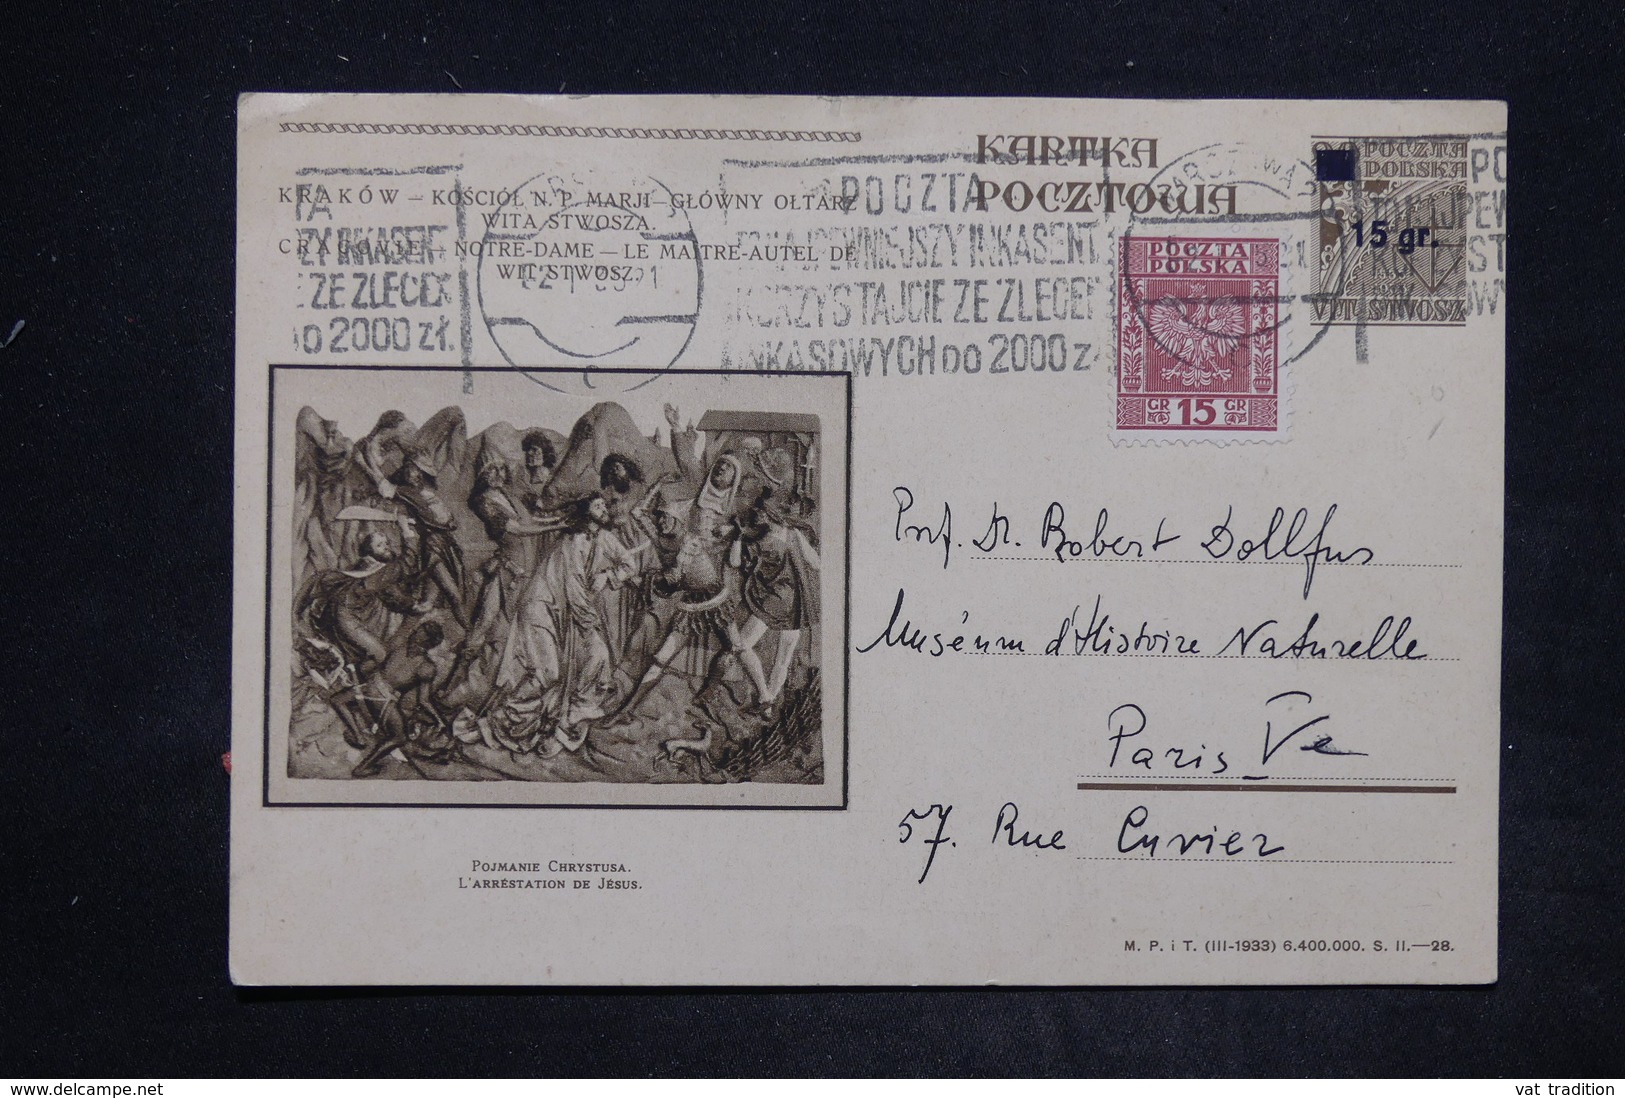 KARTKA
POCZTOWA
KRAKÓW – KOŚCIÓŁ N. P. MARJI – GŁÓWNY OŁTARZ
WITA STWOSZA.
CRACOVIE – NOTRE-DAME – LE MAÎTRE-AUTEL DE
WIT STWOSZ.
POCZTA
POLSKA
15 gr.
WIT STWOSZ
TA
SZY INKASENT
ZE ZLECEŃ
DO 2000 zł.
POCZTA
TO NAJPEWNIEJSZY INKASENT
KORZYSTAJCIE ZE ZLECEŃ
INKASOWYCH DO 2000 zł
WARSZAWA
C
POCZTA
POLSKA
GR 15 GR
Prof. Dr. Robert Dollfus
Muséum d'Histoire Naturelle
Paris Ve
57. Rue Cuvier
POJMANIE CHRYSTUSA.
L'ARRÉSTATION DE JÉSUS.
M. P. i T. (III-1933) 6.400.000. S. II.—28.
www.delcampe.net
vat tradition